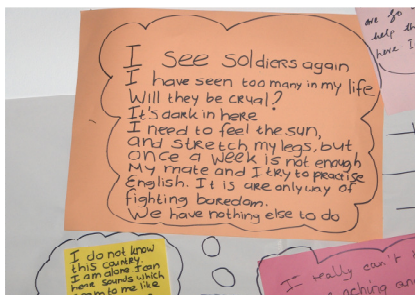 I see soldiers again
I have seen too many in my life
Will they be crual?
It's dark in here
I need to feel the sun,
and stretch my legs, but
once a week is not enough
My mate and I try to practise
English. It is are only way of
fighting boredom.
We have nothing else to do
help
here I
I do not know
this country.
I am alone I can
hear sounds which
seem to me like
I really can't
aching